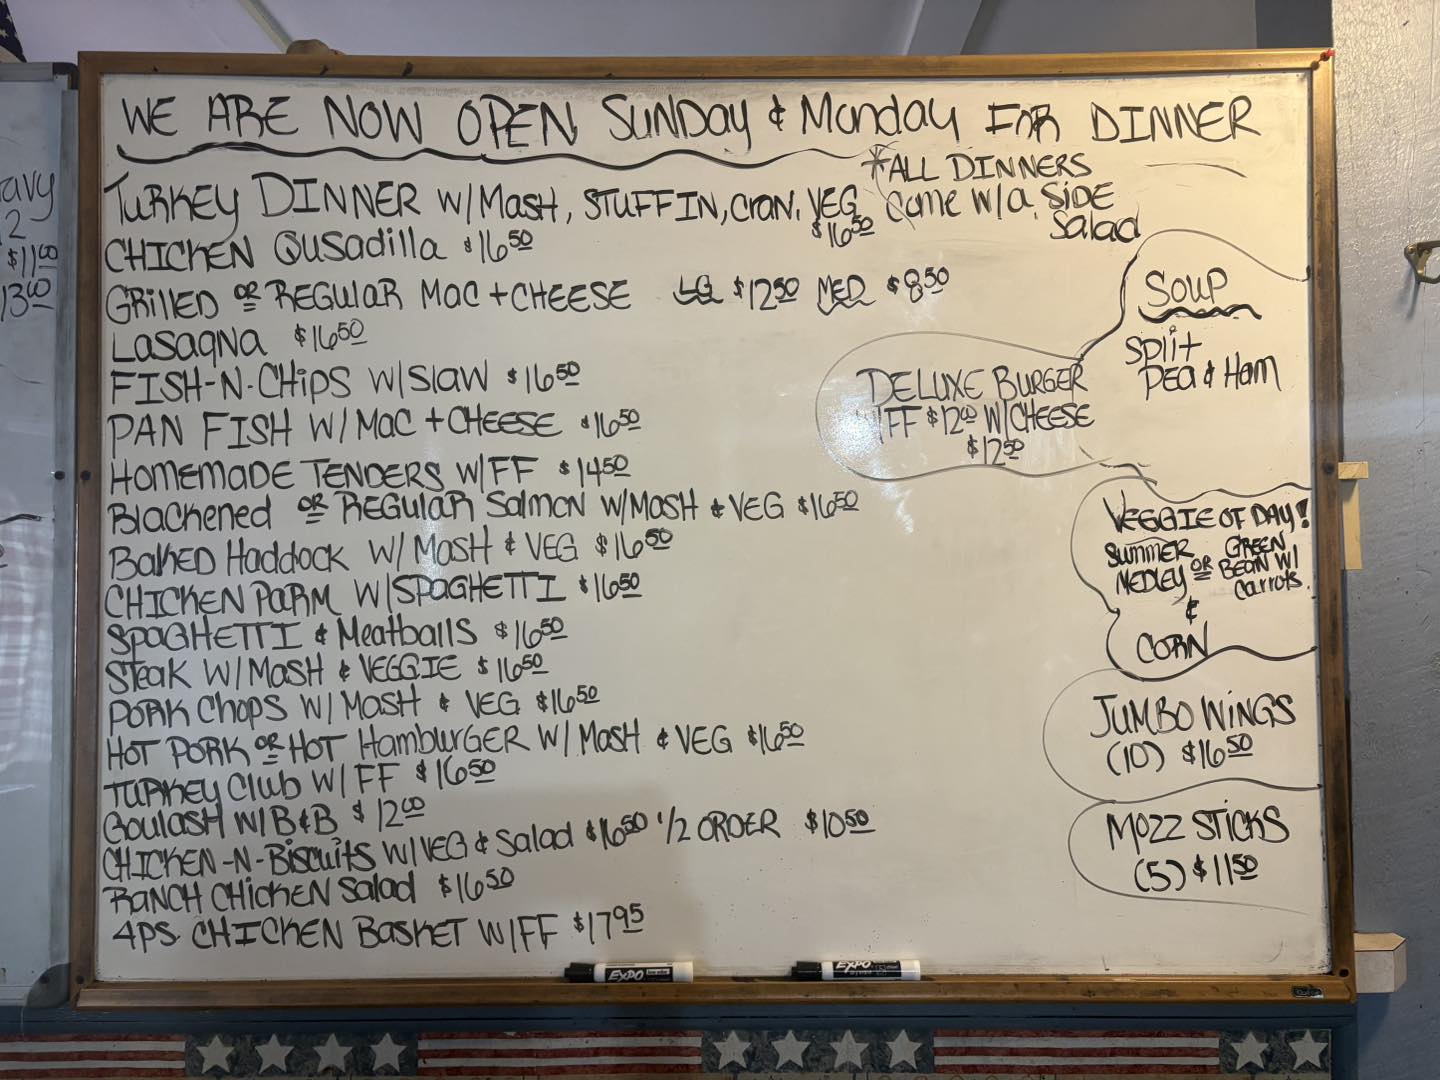 WE ARE NOW OPEN SUNDAY & MONDAY FOR DINNER
*ALL DINNERS
COME W/a SIDE
Salad
TURKEY DINNER W/MASH, STUFFIN, CRAN, VEG
$16.50
CHICKEN QUSADILLA $16.50
GRILLED OR REGULAR MAC + CHEESE LG $12.50 MED $8.50
LASAGNA $16.50
FISH-N-CHIPS W/SLAW $16.50
PAN FISH W/ MAC + CHEESE $16.50
HOMEMADE TENDERS W/FF $14.50
BLACKENED OR REGULAR SALMON W/MASH & VEG $16.50
BAKED HADDOCK W/ MASH & VEG $16.50
CHICKEN PARM W/SPAGHETTI $16.50
SPAGHETTI & MEATBALLS $16.50
STEAK W/MASH & VEGGIE $16.50
PORK CHOPS W/ MASH & VEG $16.50
HOT PORK OR HOT HAMBURGER W/ MASH & VEG $16.50
TURKEY CLUB W/FF $16.50
GOULASH W/B&B $12.00
CHICKEN-N-BISCUITS W/VEG & SALAD $16.50 1/2 ORDER $10.50
RANCH CHICKEN SALAD $16.50
4PS. CHICKEN BASKET W/FF $17.95
SOUP
SPLIT
PEA & HAM
DELUXE BURGER
/FF $12.00 W/CHEESE
$12.50
VEGGIE OF DAY!
SUMMER MEDLEY OR GREEN BEAN W/ CARROTS
&
CORN
JUMBO WINGS
(10) $16.50
MOZZ STICKS
(5) $11.50
avy
2
$11.00
13.00
EXPO
EXPO